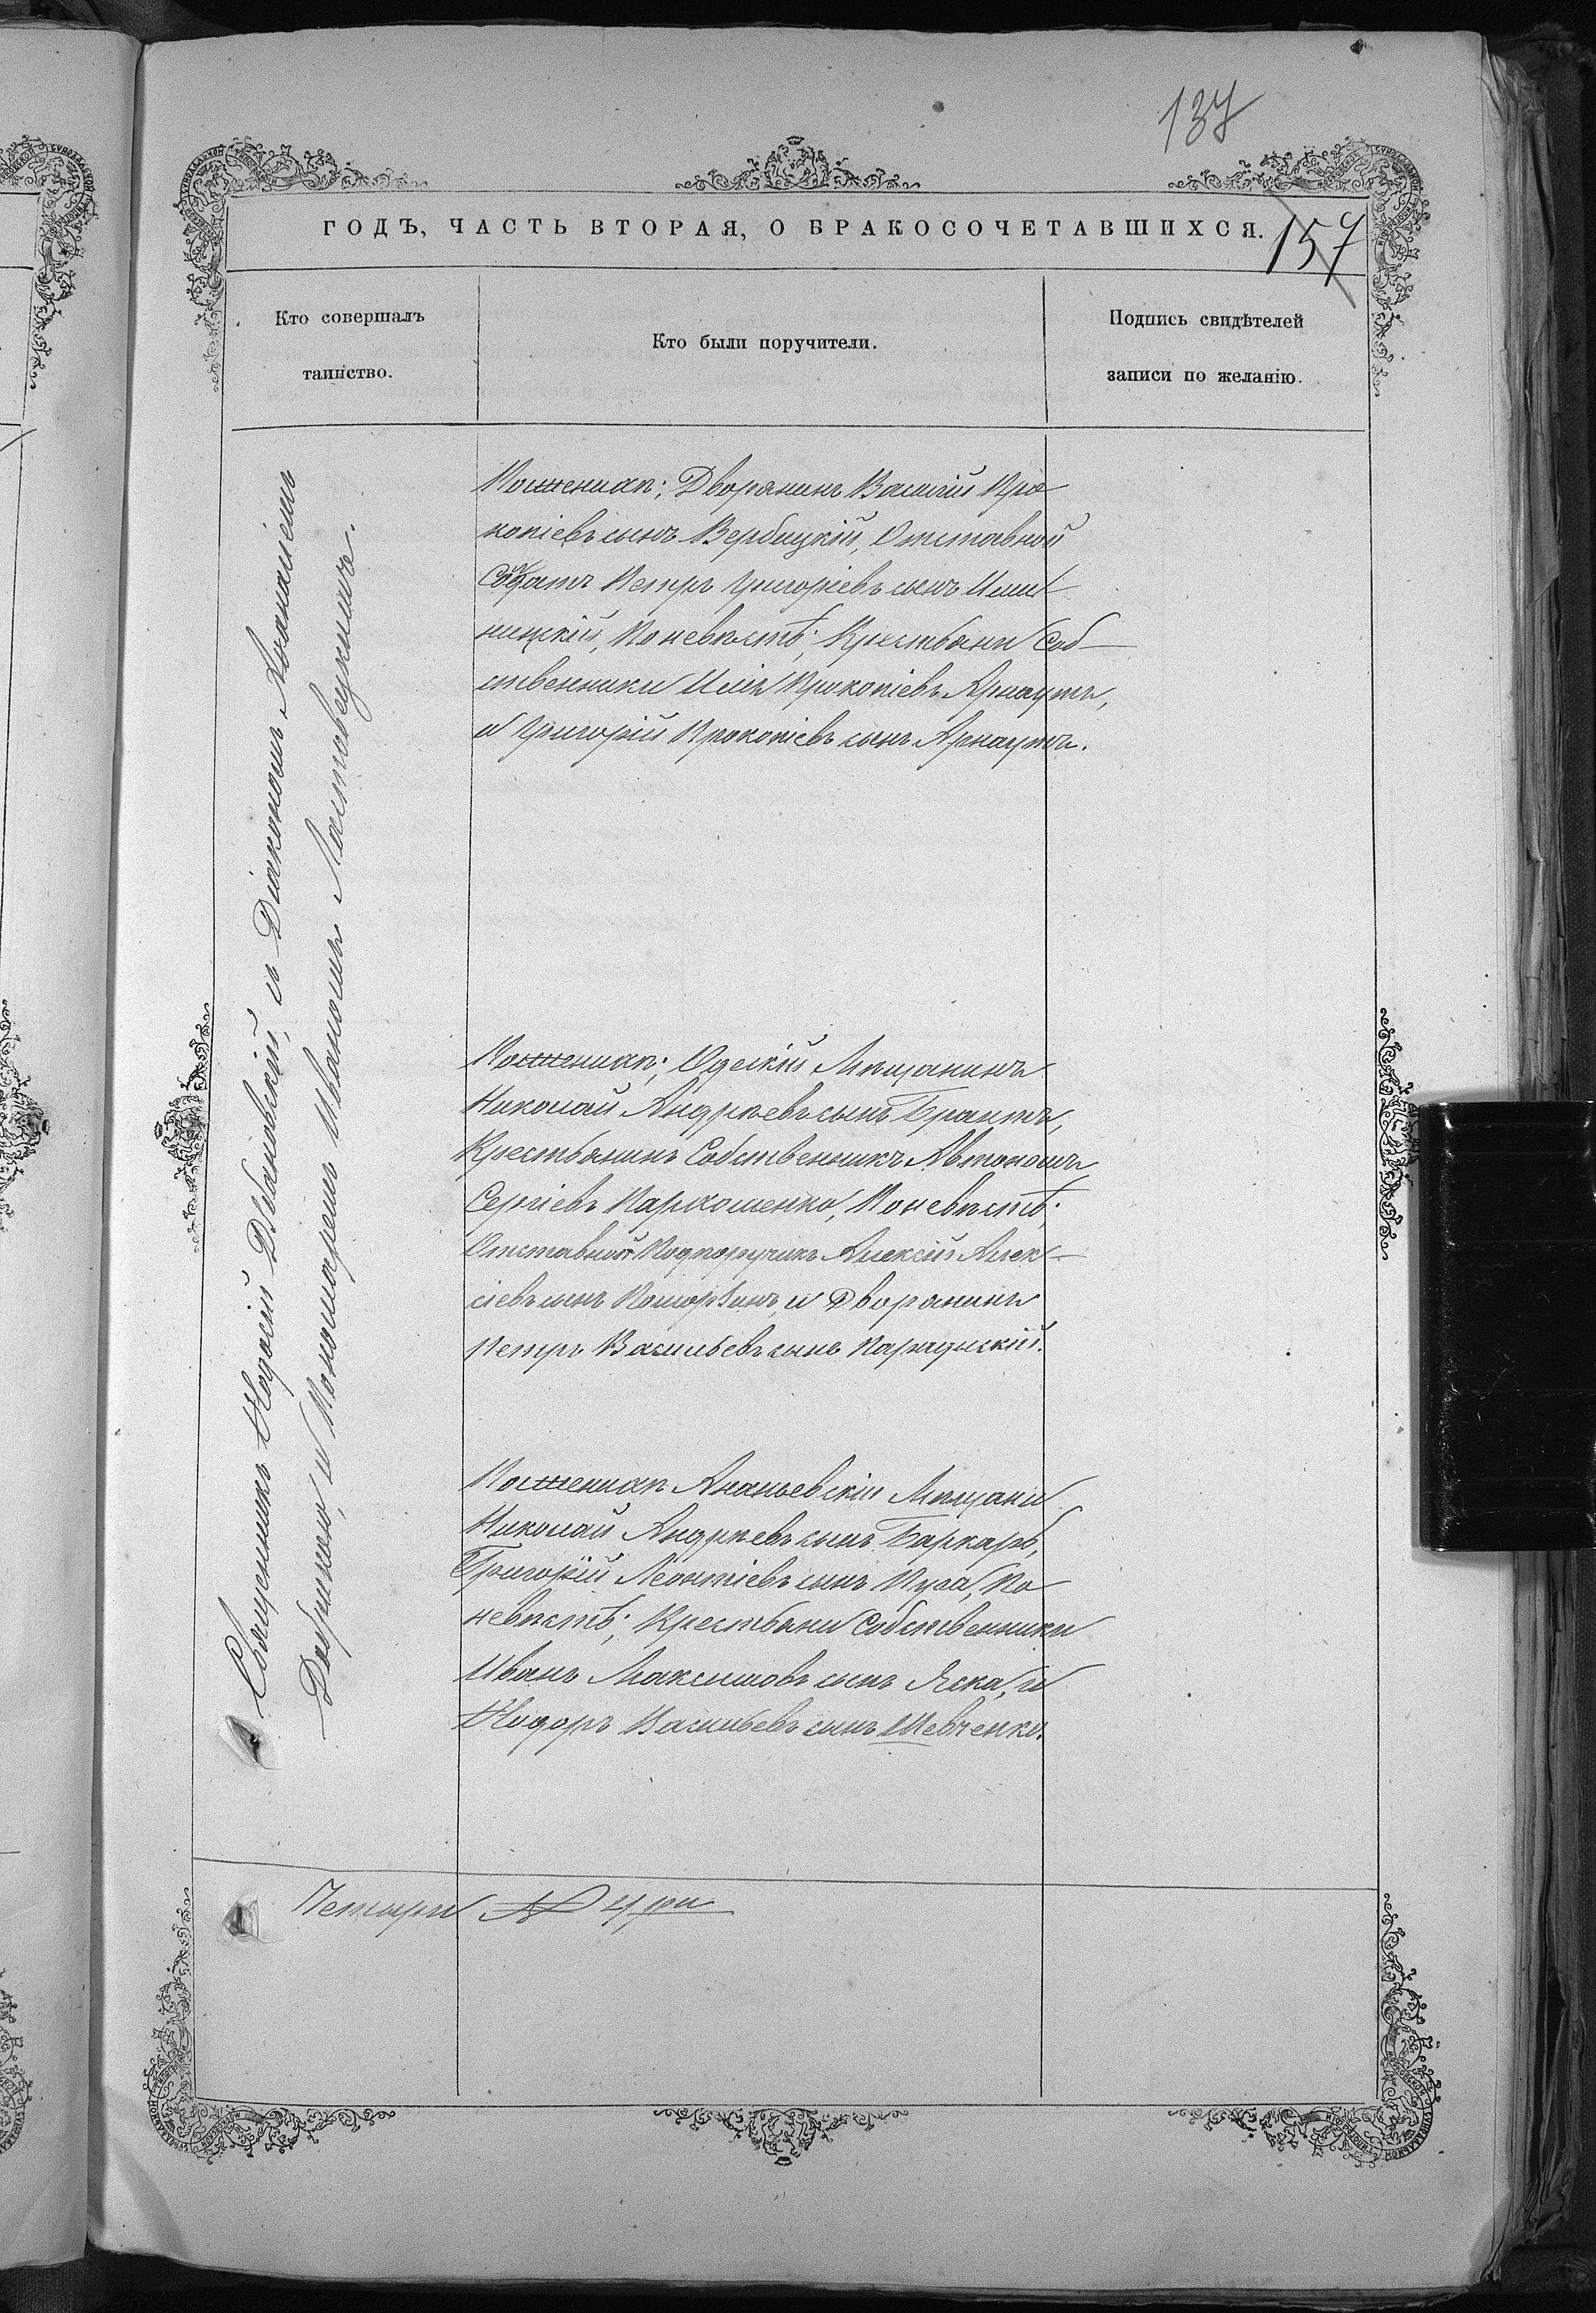 137
ГОДЪ, ЧАСТЬ ВТОРАЯ, О БРАКОСОЧЕТАВШИХСЯ.
157
Кто совершалъ
таинство.
Кто были поручители.
Подпись свидѣтелей
записи по желанію.
Священникъ Ѳеодосій Дебановскій, съ Діакономъ Аѳанасіемъ
и Пономаремъ Иваномъ Ластовецкимъ.
По женихѣ; Дворянинъ Василій Про
копіевъ сынъ Вербицкій, Отставной
Солдатъ Петръ Григоріевъ сынъ
По невѣстѣ; Крестьяни Соб-
ственники Илія Прокопіевъ Арнаутъ,
и Григорій Прокопіевъ сынъ Арнаутъ.
По женихѣ; Одескій Мѣщанинъ
Николай Андреевъ сынъ Брантъ,
Крестьянинъ Собственникъ Автономъ
Сергіевъ Пархоменко, По невѣстѣ;
Отставной Подпоручикъ Алексій Алек-
сіевъ сынъ и Дворянинъ
Петръ Васильевъ сынъ
По женихѣ Ананьевскіи Мѣщани
Николай Андреевъ сынъ Баркарь,
Григорій Леонтіевъ сынъ По
невѣстѣ; Крестьяни Собственники
Иванъ Максимовъ сынъ Яска, и
Ѳеодоръ Васильевъ сынъ Шевченко.